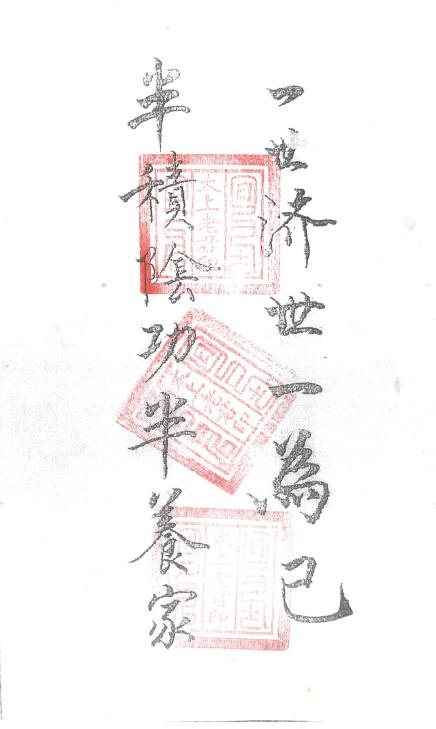 一世济世一為己
半積陰功半養家
太上老君印
太上老君印